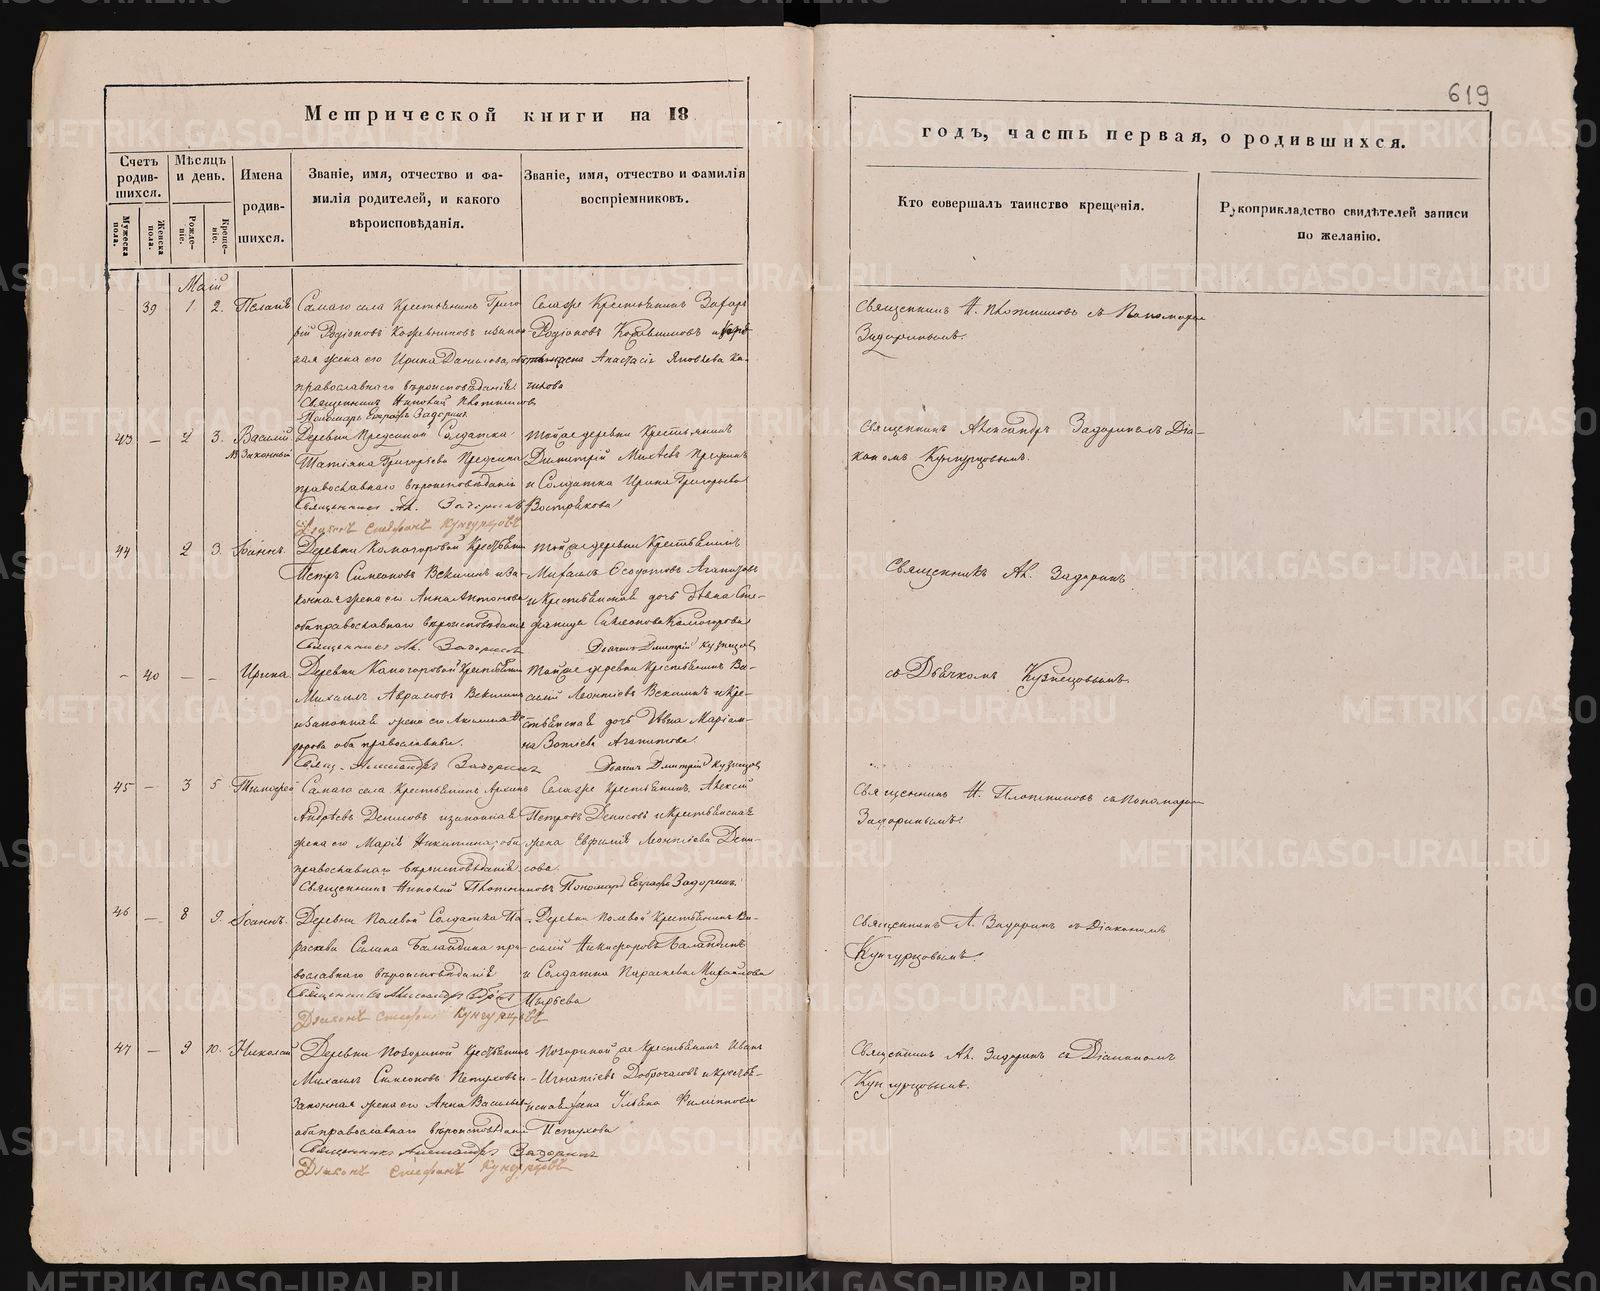 619
Метрической книги на 18
годъ, часть первая, о родившихся.
Счетъ родив-шихся.
Мѣсяцъ и день.
Имена родив-шихся.
Званіе, имя, отчество и фа-
милія родителей, и какого
вѣроисповѣданія.
Званіе, имя, отчество и фамилія
воспріемниковъ.
Кто совершалъ таинство крещенія.
Рукоприкладство свидѣтелей записи
по желанію.
Мужеска пола.
Женска пола.
Рожде-ніе.
Креще-ніе.
Маій
39 1 2. Пелагія
Самаго села Крестьянинъ Григо
рій Родіоновъ Кожевниковъ и закон
ная жена его Ирина Данилова, оба
православнаго вѣроисповѣданія
Священникъ Николай Плотниковъ
Пономарь Евграфъ Задоринъ
Села же Крестьянинъ Захаръ
Родіоновъ
жена Анастасія Яковлева Ка-
Священникъ Н. Плотниковъ съ Пономаремъ
Задоринымъ.
43 — 2 3. Василій
Незаконный
Деревни Солдатка
Татіяна Григорьева
православнаго вѣроисповѣданія
Священникъ Ал. Задоринъ
Діаконъ Стефанъ Кунгурцовъ
Той же деревни Крестьянинъ
Димитрій
и Солдатка Ирина Григорьева
Вострякова
Священникъ Александръ Задоринъ съ Діа-
кономъ Кунгурцовымъ.
44 2 3. Іоаннъ.
Деревни Комогоровой Крестьянинъ
Петръ Симеоновъ Векшинъ и за-
конная жена его Анна Антонова
оба православнаго вѣроисповѣданія
Священникъ Ал. Задоринъ
Той же деревни Крестьянинъ
Михаилъ Ѳеодотовъ Агапитовъ
и Крестьянская дочь дѣвка Сте-
фанида Симеонова Комогорова
Дьячекъ Дмитрій Кузнецов
Священникъ Ал. Задоринъ
— 40 — — Ирина
Деревни Комогоровой Крестьянинъ
Михаилъ Аврамовъ Векшинъ
и законная жена его Акилина Ѳе
дорова оба православные.
Свящ. Александръ Задоринъ
Той же деревни Крестьянинъ Ва-
силій Леонтіевъ Векшинъ и Кре-
стьянская дочь дѣвка Маріам-
на Агапитова.
Дьячекъ Дмитрій Кузнецов
съ Дьячкомъ Кузнецовымъ
45 — 3 5 Тимофей
Самаго села Крестьянинъ
Андреевъ Денисовъ и законная
жена его Марія Никитина, оба
православнаго вѣроисповѣданія
Священникъ Николай Плотниковъ Пономарь Евграфъ Задоринъ.
Села же Крестьянинъ Алексій
Петровъ Денисовъ и Крестьянская
жена Евфимія Леонтіева Дени-
сова
Священникъ Н. Плотниковъ съ Пономаремъ
Задоринымъ.
46 — 8 9. Іоаннъ.
Деревни Полевой Солдатка Па
раскева Силина Баландина пра-
вославнаго вѣроисповѣданія
Священникъ Александръ
Діаконъ Стефанъ Кунгурцовъ
Деревни Полевой Крестьянинъ Ва-
силій Никифоровъ Баландинъ
и Солдатка Параскева Михайлова
Священникъ А. Задоринъ съ Діакономъ
Кунгурцовымъ.
47 — 9 10. Николай
Деревни Позориной Крестьянинъ
Михаилъ Симеоновъ Пѣтуховъ и
Законная жена его Анна Васильева
оба православнаго вѣроисповѣданія
Священникъ Александръ Задоринъ
Діаконъ Стефанъ Кунгурцовъ
Позориной же Крестьянинъ Иванъ
Игнатіевъ и крестья-
нская жена Ульяна Филиппова
Пѣтухова
Священникъ Ал. Задоринъ съ Діакономъ
Кунгурцовымъ.
METRIKI.GASO-URAL.RU